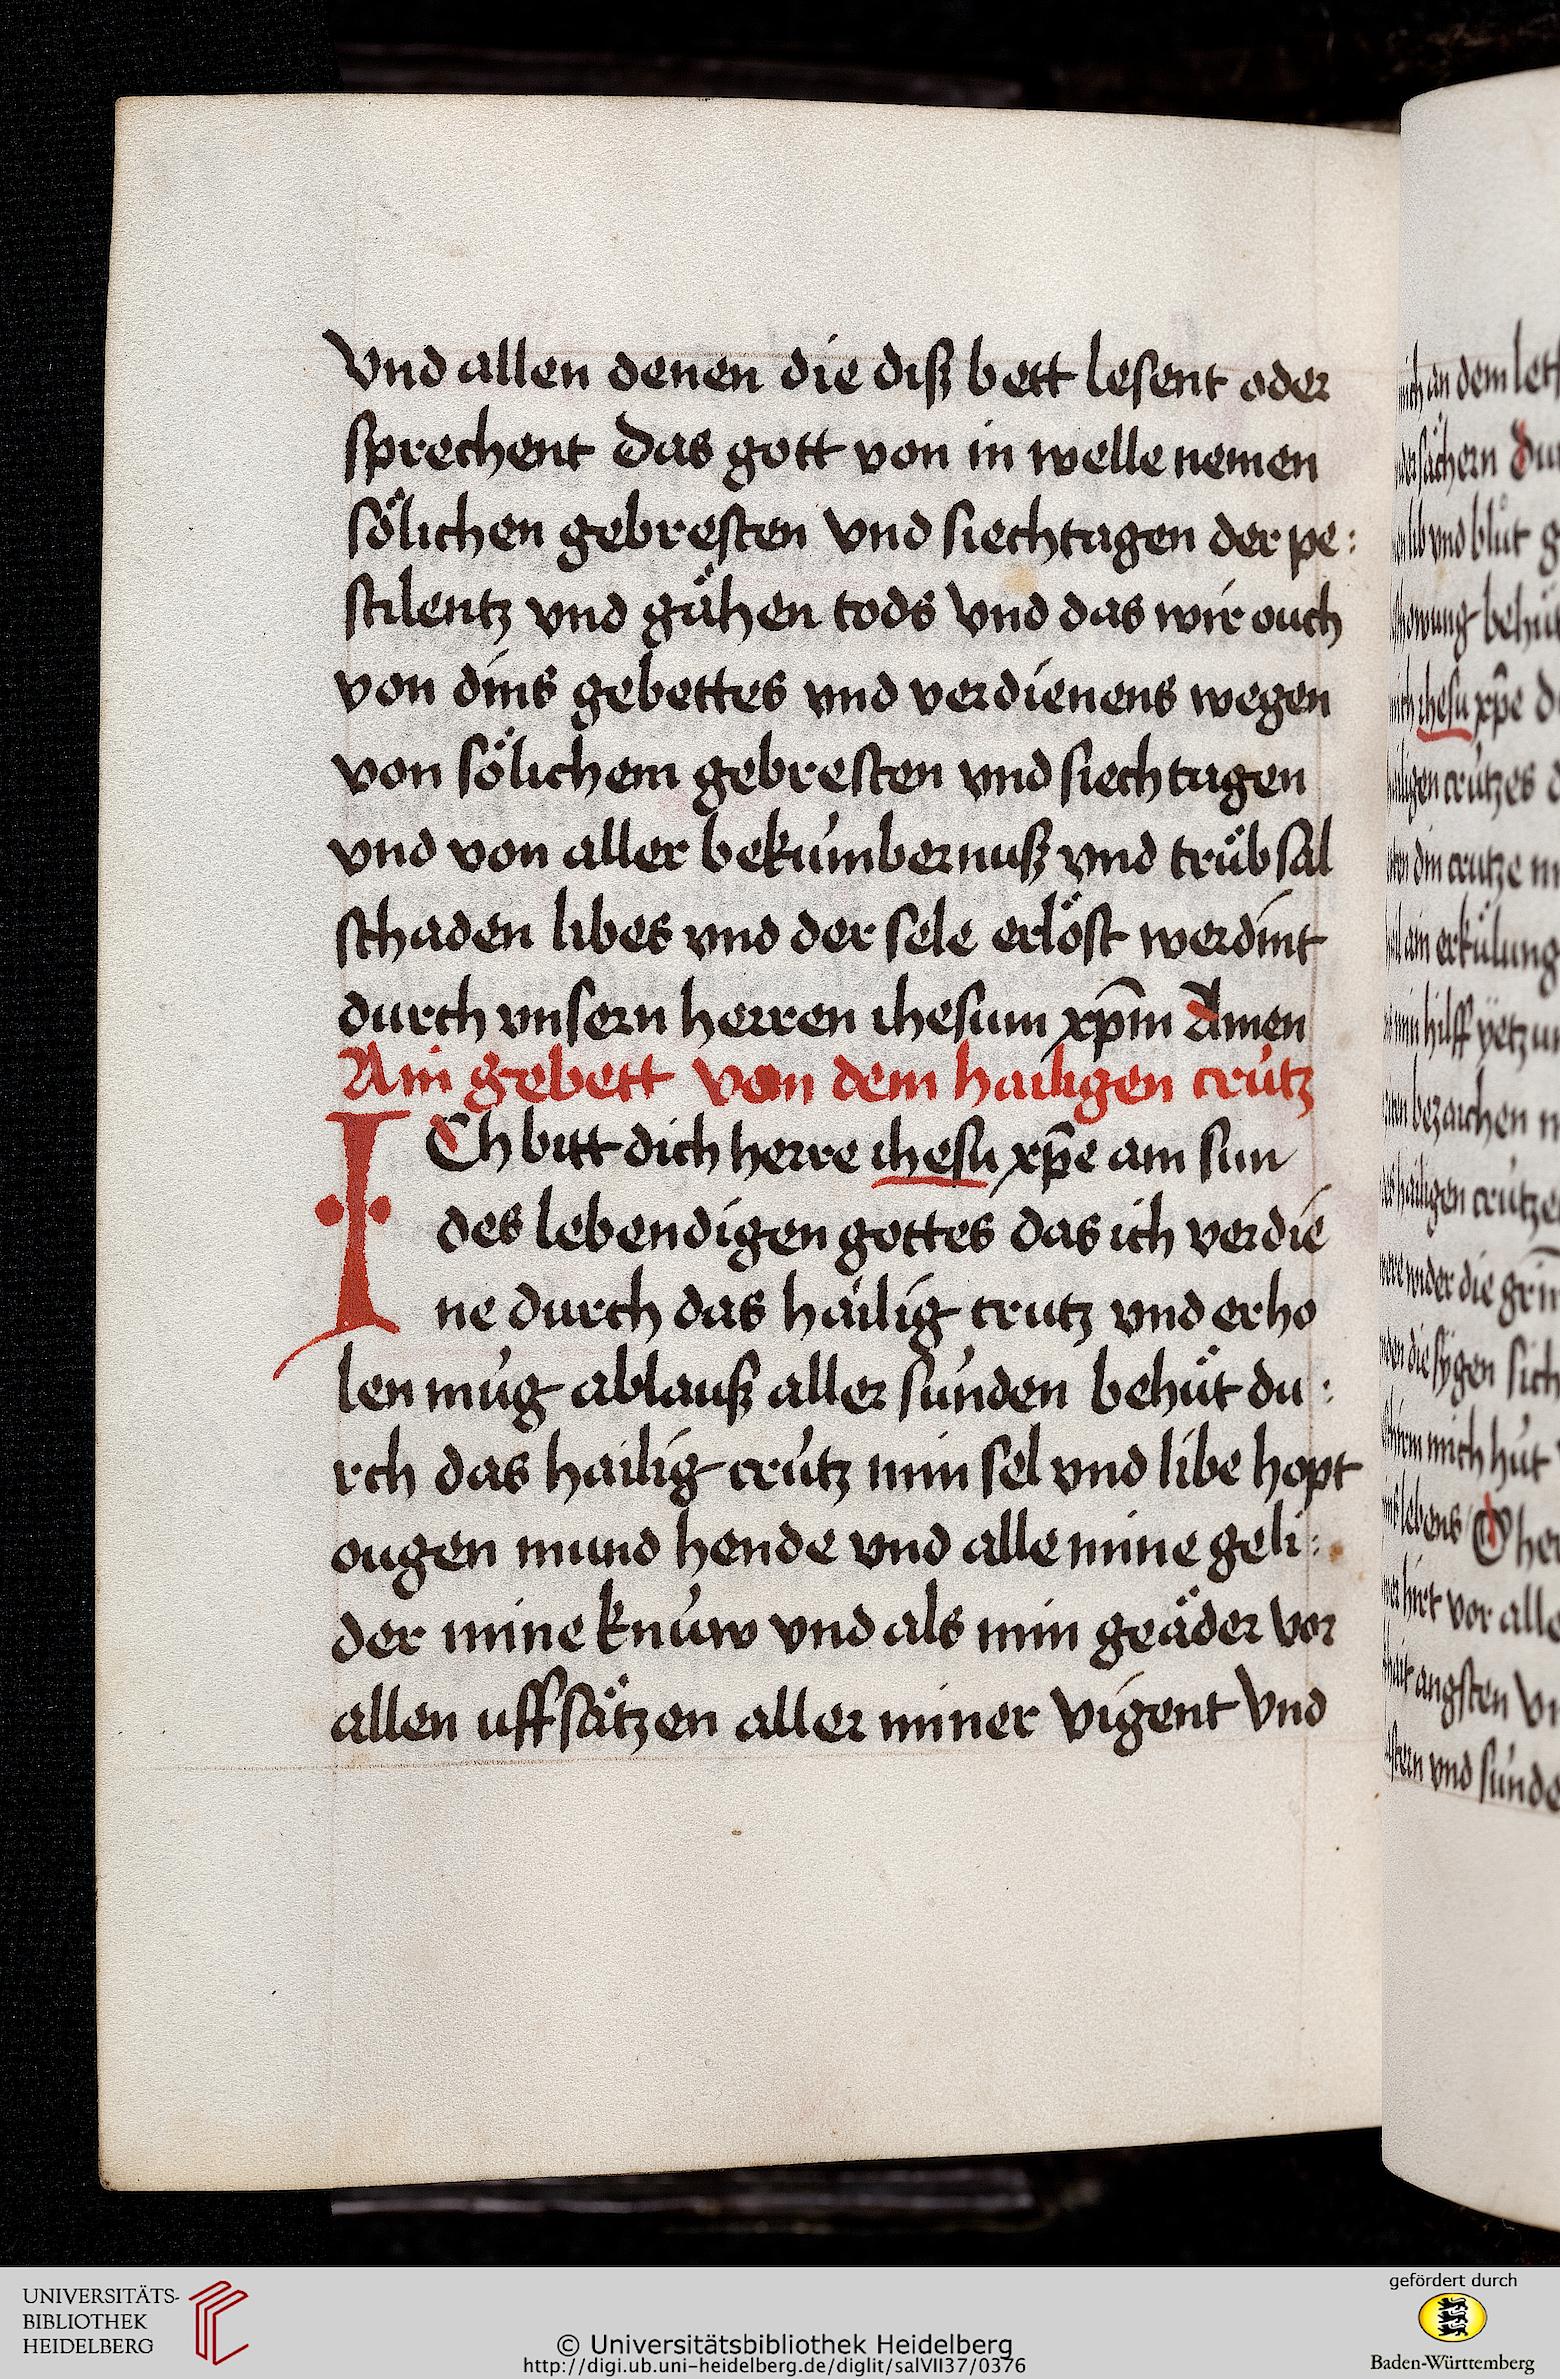 vnd allen denen die diß bett lesent oder
sprechent Das gott von in welle nemen
sölichen gebresten vnd siechtagen der pe:
stilentz vnd gähen tods vnd das wir ouch
von dins gebettes vnd verdienens wegen
von sölichem gebresten vnd siechtagen
vnd von aller bekúmbernuß vnd trübsal
schaden libes vnd der sele erlöst werdint
durch vnsern herren ihesum xp̄m Amen
Ain gebett von dem hailigen crútz
ICh bitt dich herre ihesu xp̄e ain sun
des lebendigen gottes das ich verdie
ne durch das hailig crutz vnd erho
len múg ablauß aller súnden behüt du:
rch das hailig crútz min sel vnd libe hopt
ougen mund hende vnd alle mine geli:
der mine knúw vnd als min geäder vor
allen uffsätzen aller miner vigent vnd
mich an dem
sächern du
lib vnd blůt
mich ihesu xp̄e
hailigen crútzes
din crútze
ain erkülung
min hilff yetz
bezaichen
des hailigen crútze
wider die
die sygen sich
mich hüt
lebens O her
hirt vor alle
angsten
vnd sunde
UNIVERSITÄTS-
BIBLIOTHEK
HEIDELBERG
© Universitätsbibliothek Heidelberg
http://digi.ub.uni-heidelberg.de/diglit/salVII37/0376
gefördert durch
Baden-Württemberg